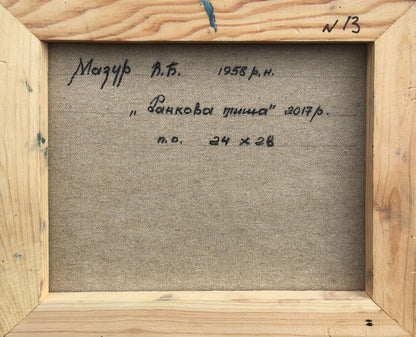 N 13
Мазур В.Б. 1958 р.н.
„Ранкова тиша" 2017р.
п.о. 24 х 28